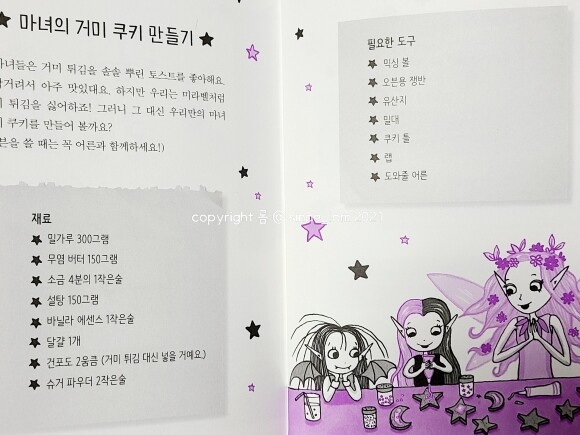 마녀의 거미 쿠키 만들기
마녀들은 거미 튀김을 솔솔 뿌린 토스트를 좋아해요.
맛있대요. 하지만 우리는 미라벨처럼
튀김을 싫어하죠! 그러니 그 대신 우리만의 마녀
쿠키를 만들어 볼까요?
쓸 때는 꼭 어른과 함께하세요!)
재료
밀가루 300그램
무염 버터 150그램
소금 4분의 1작은술
설탕 150그램
바닐라 에센스 1작은술
달걀 1개
건포도 2움큼 (거미 튀김 대신 넣을 거예요.)
슈거 파우더 2작은술
필요한 도구
믹싱 볼
오븐용 쟁반
유산지
밀대
쿠키 틀
랩
도와줄 어른
copyright
2021